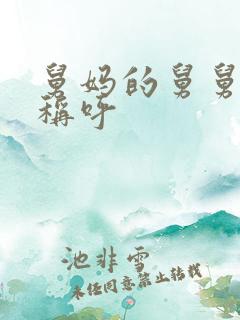 舅妈的舅舅
稱呼
池非雪
未经同意禁止转载